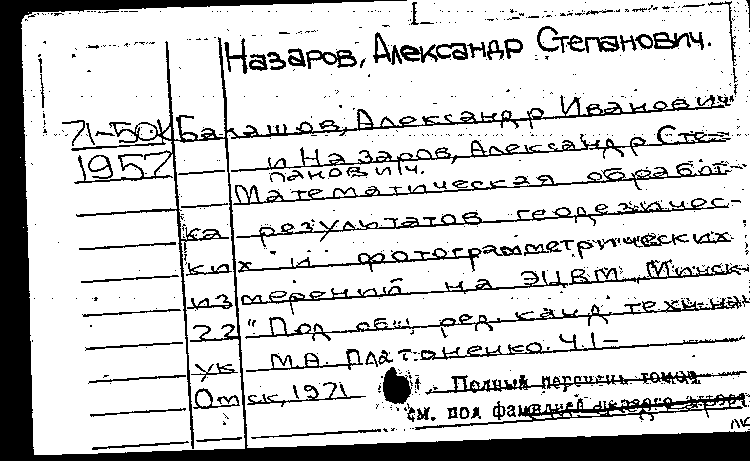 Назаров, Александр Степанович.
71-50К Балашов, Александр Иванович
1957 и Назаров, Александр Сте-
панович.
Математическая обработ-
ка результатов геодезичес-
ких и фотограмметрических
измерений на ЭЦВМ „Минск-
22" Под общ. ред. канд. техн. на-
ук М.А. Платоненко. Ч.1-
Омск, 1971
. Полный перечень томов
см. под фамилией первого автора